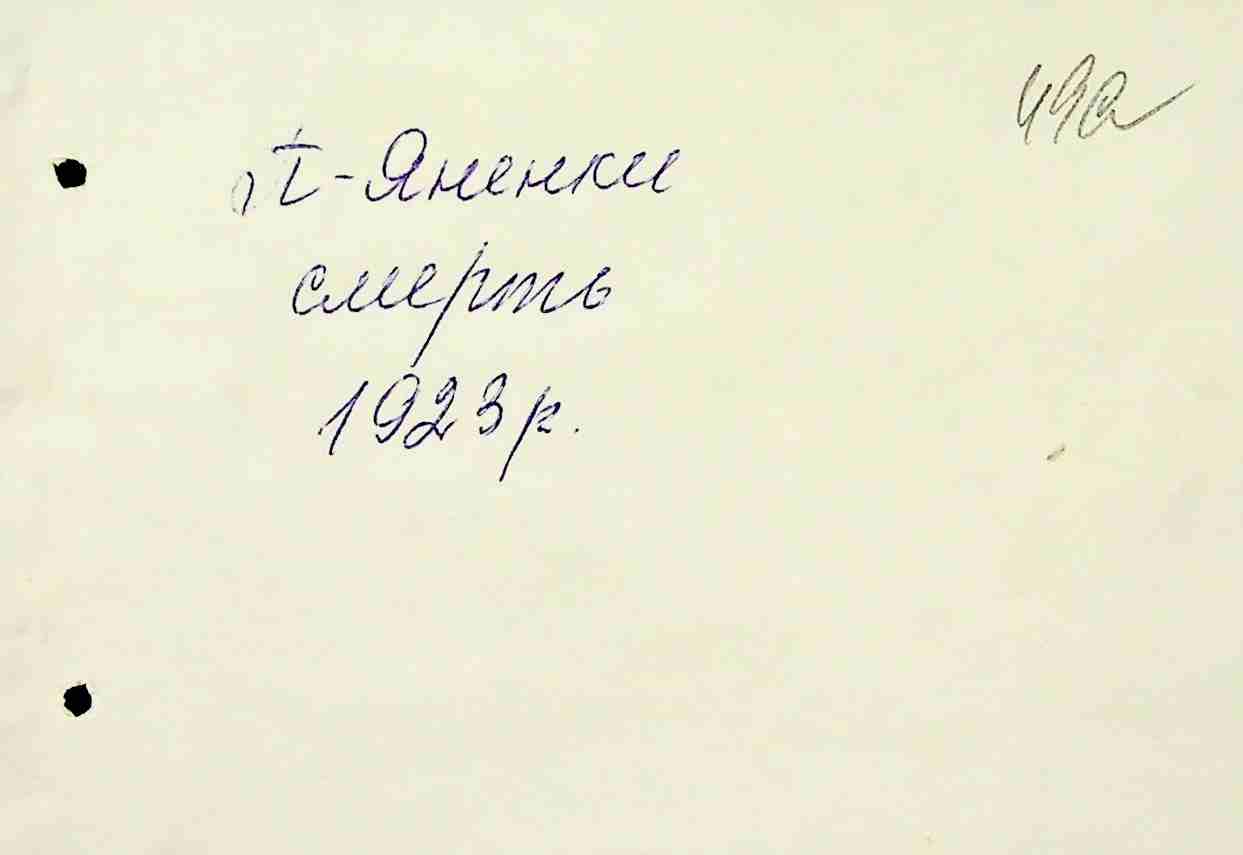 49а
І-Яненки
смерть
1923 р.